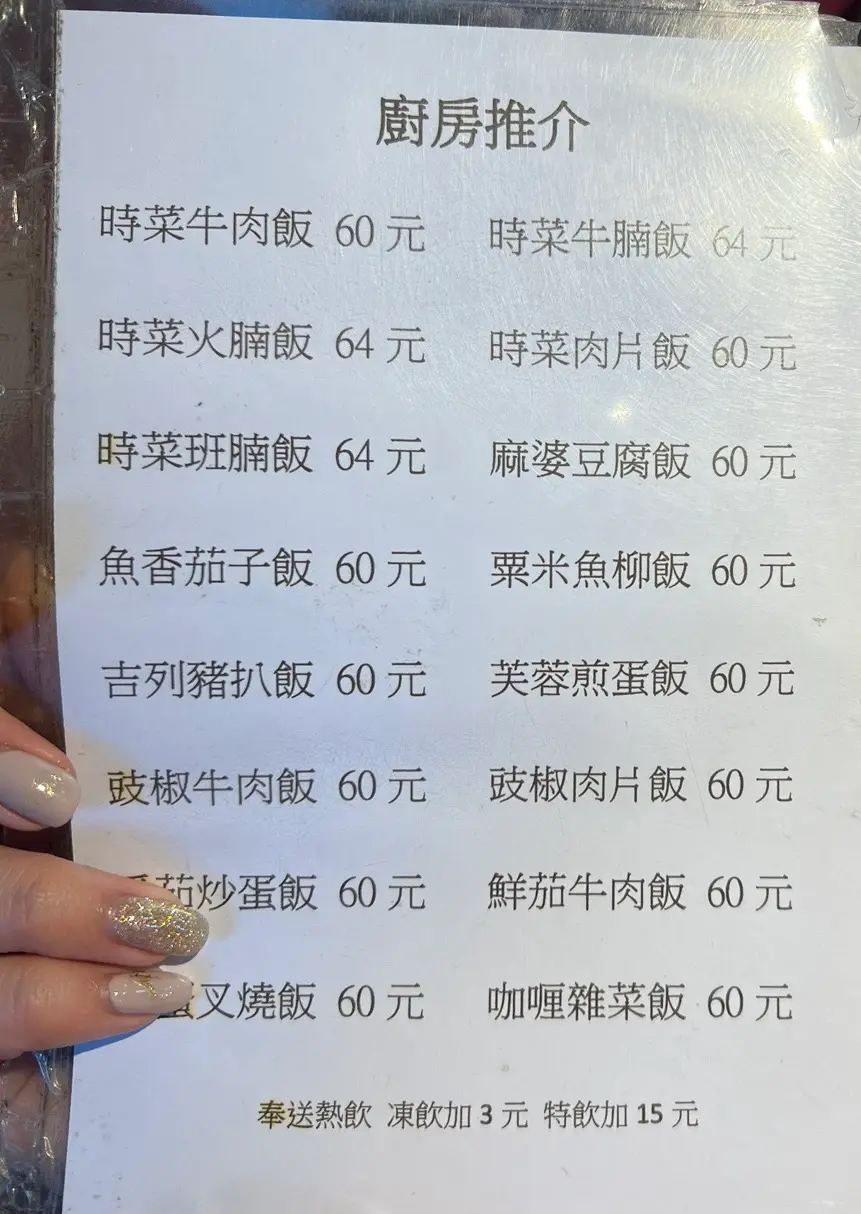 廚房推介
時菜牛肉飯 60 元 時菜牛腩飯 64 元
時菜火腩飯 64 元 時菜肉片飯 60 元
時菜班腩飯 64 元 麻婆豆腐飯 60 元
魚香茄子飯 60 元 粟米魚柳飯 60 元
吉列豬扒飯 60 元 芙蓉煎蛋飯 60 元
豉椒牛肉飯 60 元 豉椒肉片飯 60 元
茄炒蛋飯 60 元 鮮茄牛肉飯 60 元
叉燒飯 60 元 咖喱雜菜飯 60 元
奉送熱飲 凍飲加 3 元 特飲加 15 元